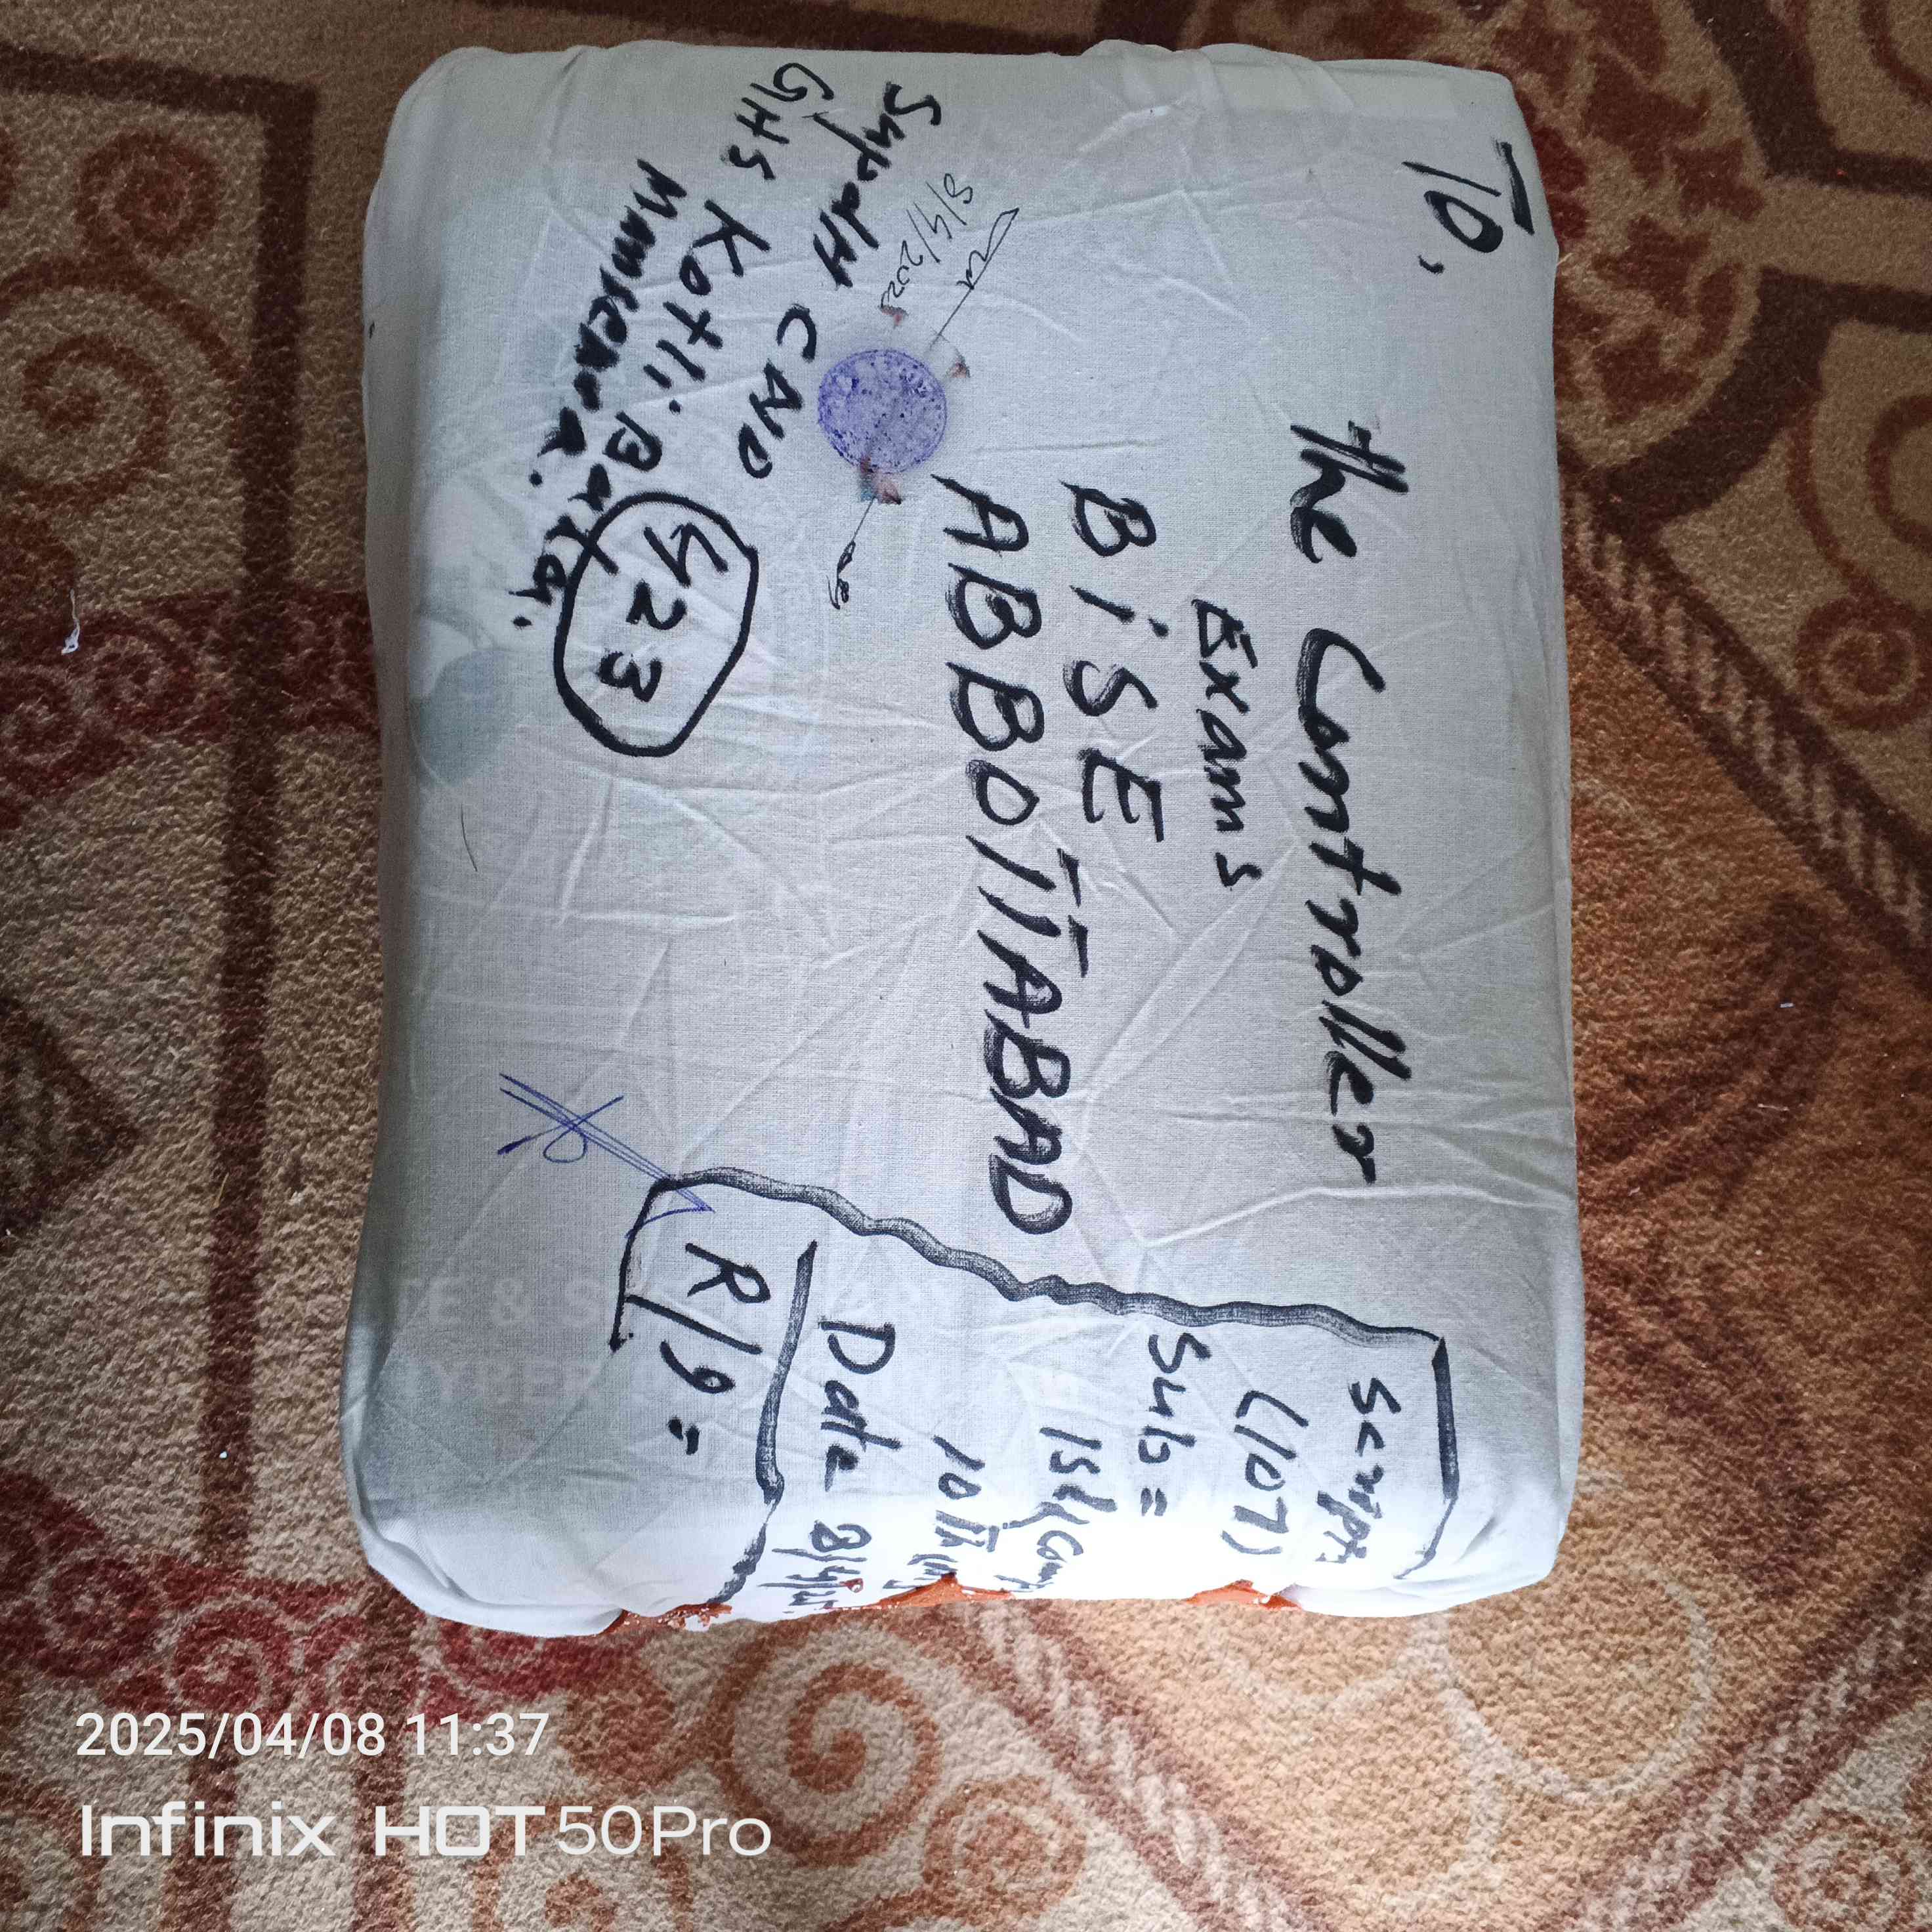 To,
The Controller
Exams
BiSE
ABBOTTABAD
8/4/2025
Supdtt CND
GHS Kotli Bala
Mansehra.
423
Scripts
(107)
Sub =
Isl(Comp
10th
Date 8/4/25
R/9 =
2025/04/08 11:37
Infinix HOT 50Pro